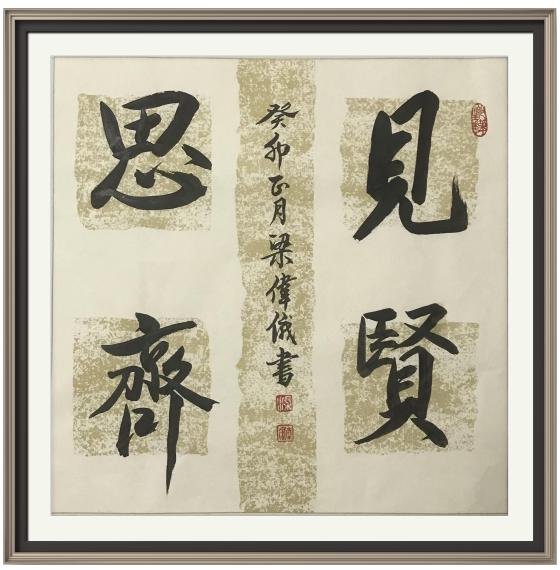 見賢
思齊
癸卯正月梁偉俄書